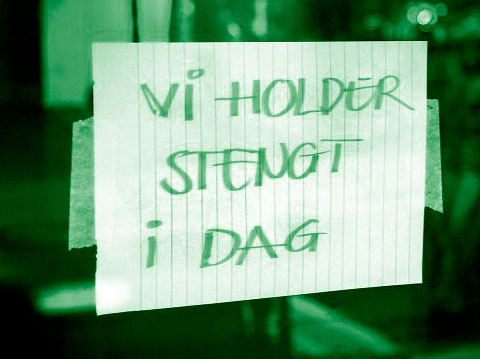 Vi HOLDER
STENGT
i DAG